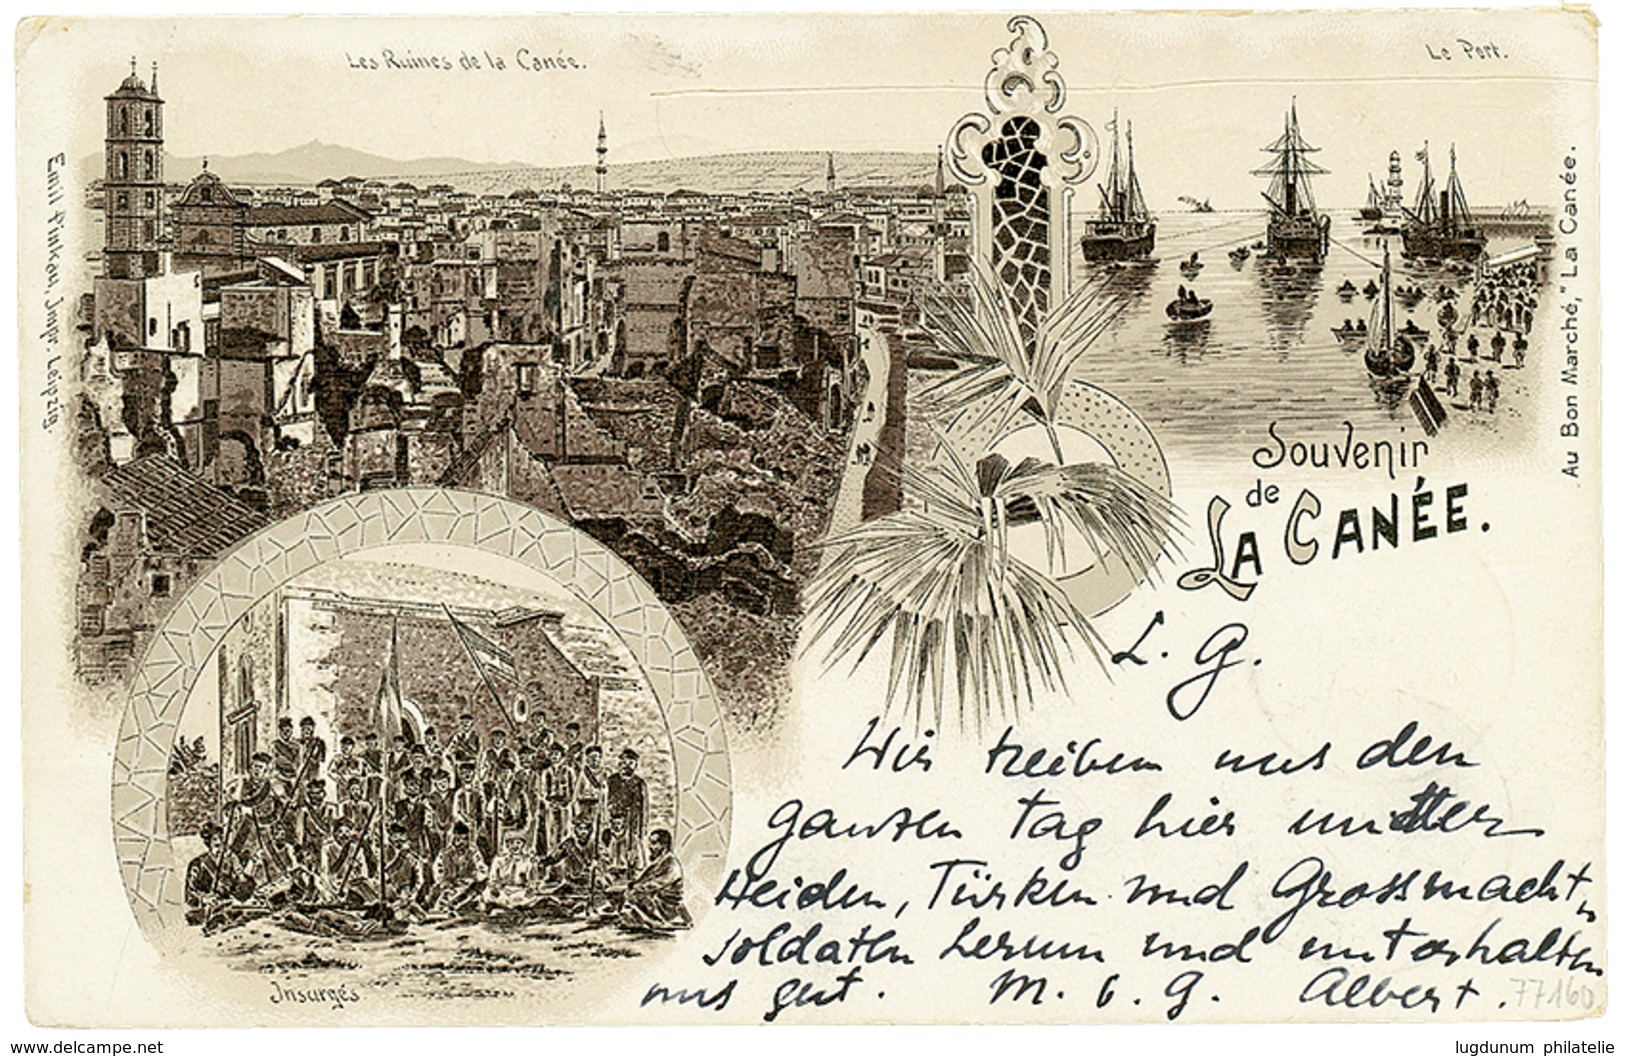 Les Ruines de la Canée.
Le Port.
Emil Pinkau, Impr. Leipzig.
Au Bon Marché, "La Canée.
Souvenir
de
LA CANÉE.
L. G.
Wir treiben uns den
ganzen Tag hier unter
Heiden, Türken und Grossmacht,
soldaten herum und unterhalten
uns gut. M. b. G. Albert.
77160
Insurgés
delcampe.net
lugdunum philatelie